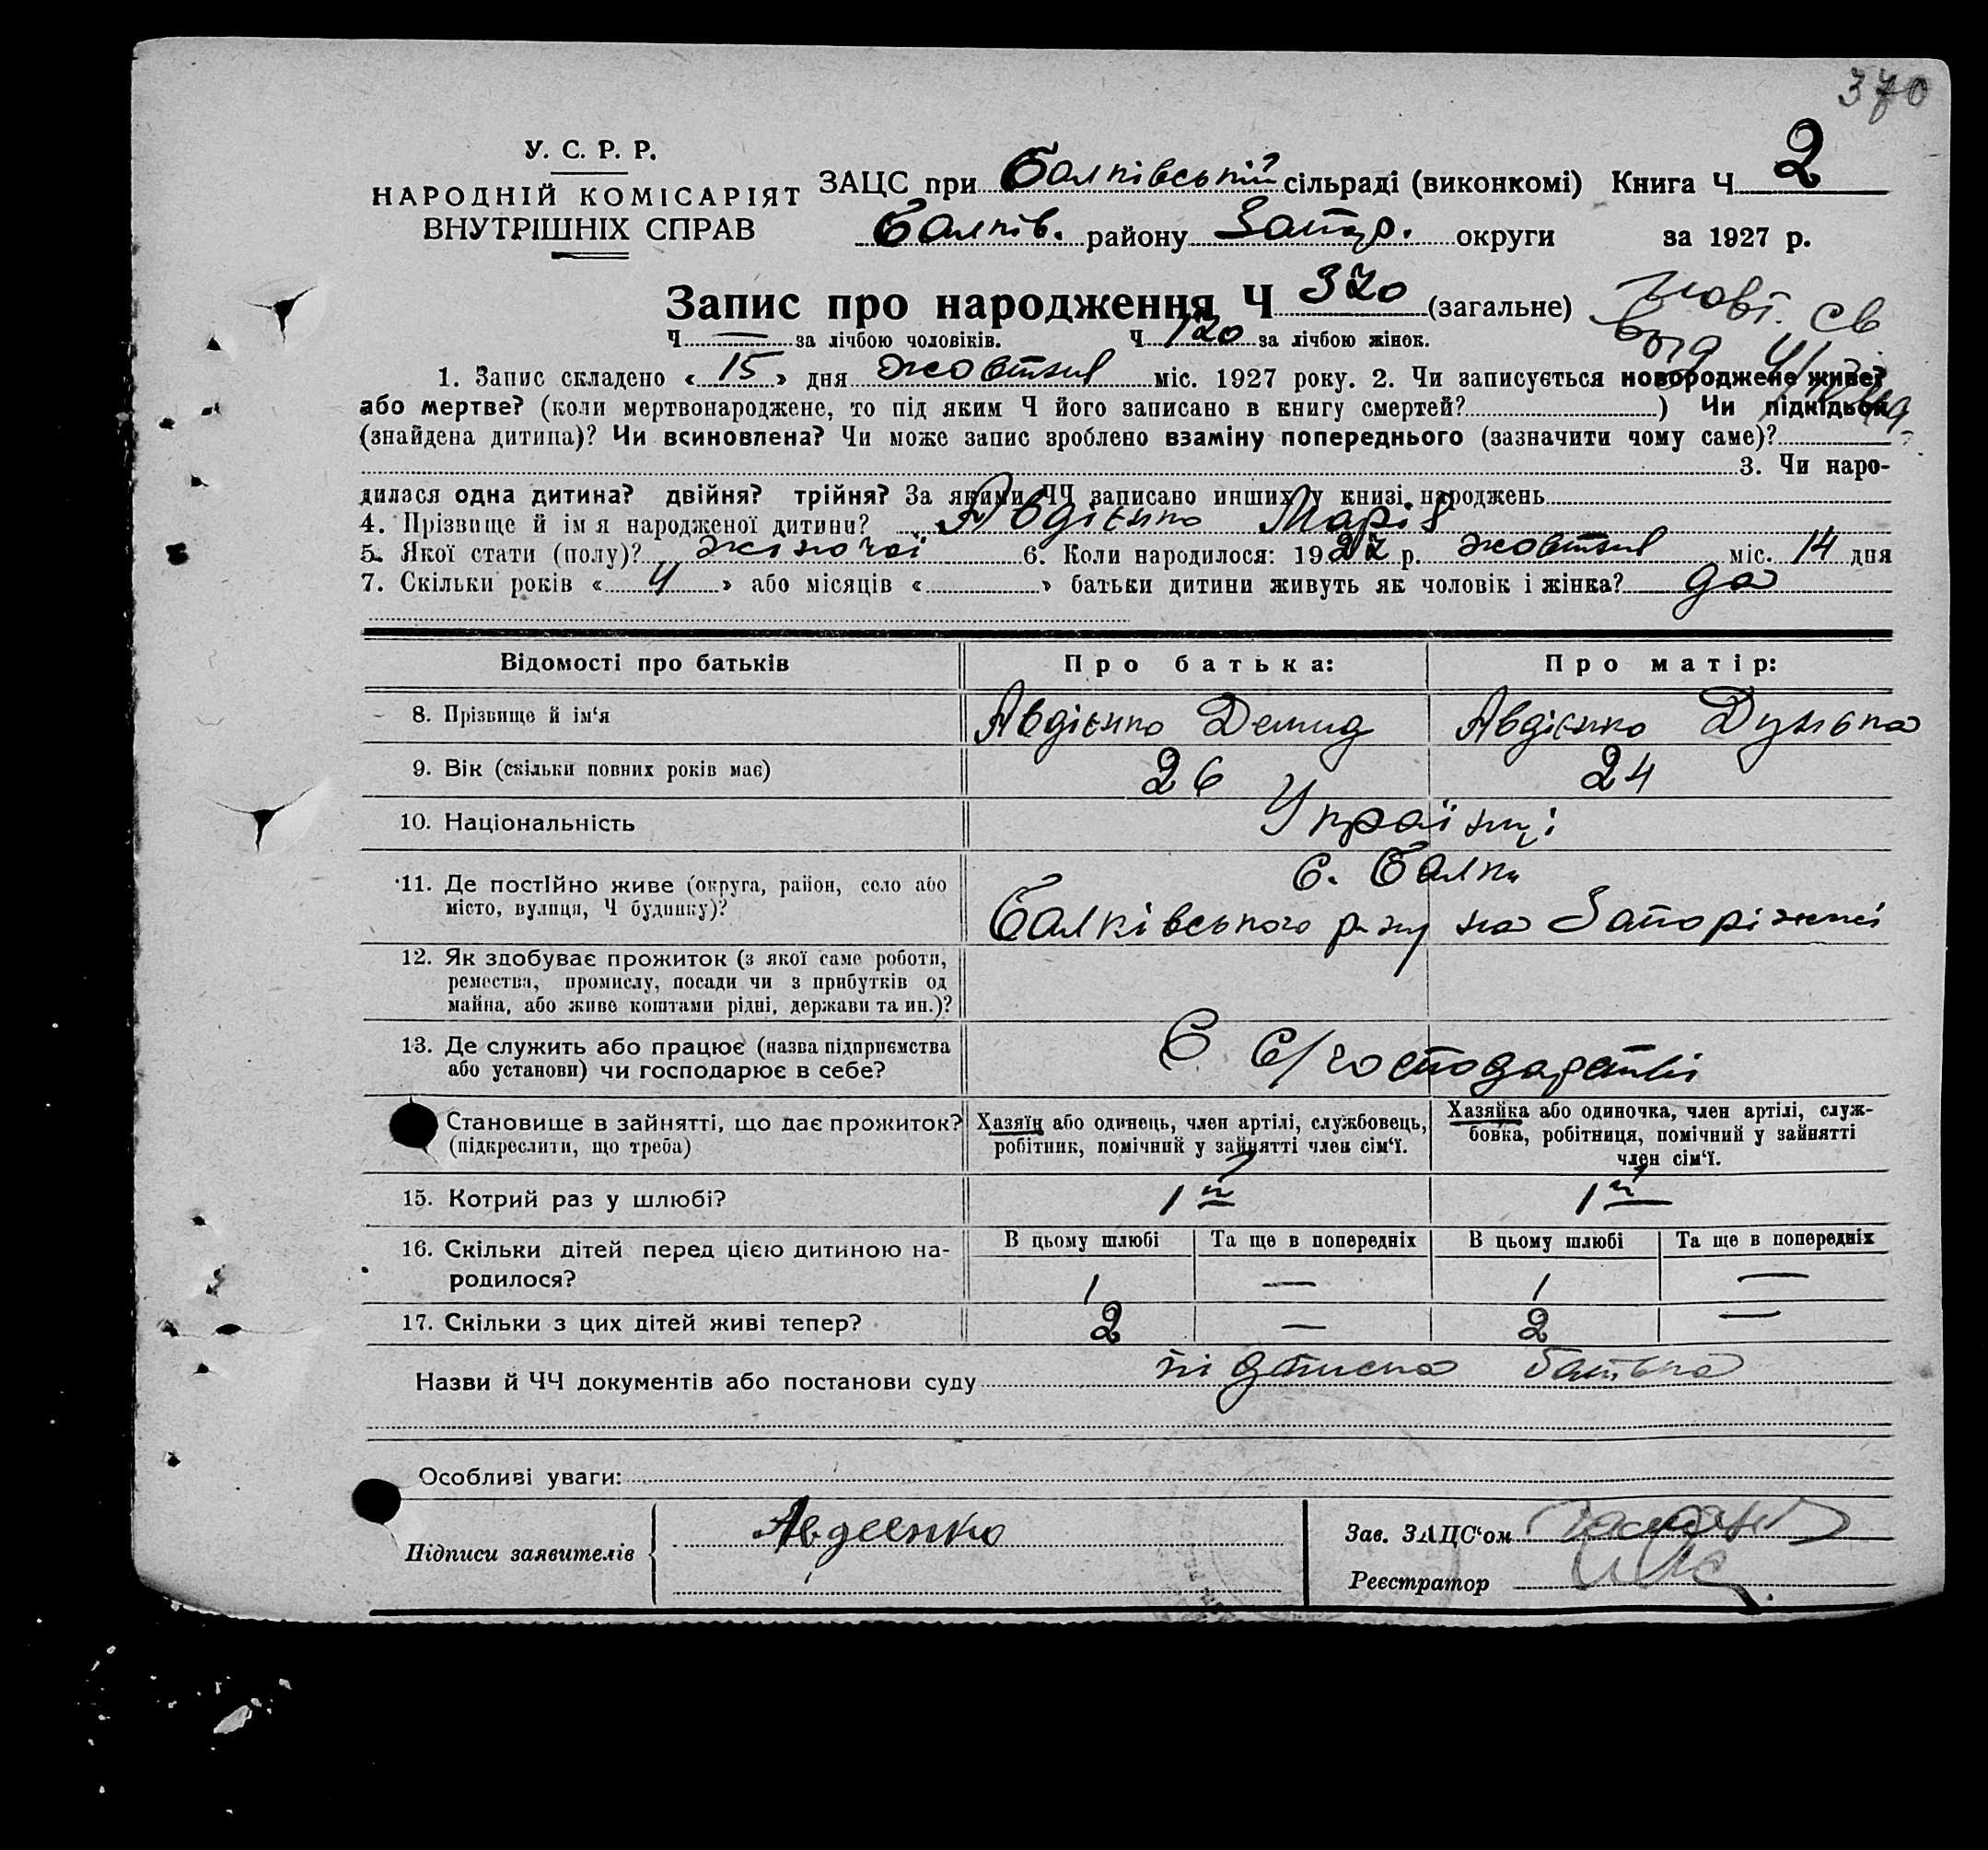 370
У. С. Р. Р.
НАРОДНІЙ КОМІСАРІЯТ
ВНУТРІШНІХ СПРАВ
ЗАЦС при Балківській сільраді (виконкомі) Книга Ч 2
Балків. району Запор. округи за 1927 р.
Запис про народження Ч 370 (загальне)
Ч — за лічбою чоловіків. Ч 120 за лічбою жінок.
1. Запис складено « 15 » дня жовтня міс. 1927 року. 2. Чи записується новороджене живе?
або мертве? (коли мертвонароджене, то під яким Ч його записано в книгу смертей?) Чи підкідьок
(знайдена дитина)? Чи всиновлена? Чи може запис зроблено взаміну попереднього (зазначити чому саме)?
3. Чи наро-
дилася одна дитина? двійня? трійня? За якими ЧЧ записано инших у книзі народжень
4. Прізвище й ім я народженої дитини? Авдієнко Марія
5. Якої стати (полу)? жіночої 6. Коли народилося: 1927 р. жовтня міс. 14 дня
7. Скільки років « 4 » або місяців « » батьки дитини живуть як чоловік і жінка? да
Відомості про батьків Про батька: Про матір:
8. Прізвище й ім‘я Авдієнко Демид Авдієнко Дунька
9. Вік (скільки повних років має) 26 24
10. Національність Українці
11. Де постійно живе (округа, район, село або
місто, вулиця, Ч будинку)?
с. Балки
Балківського р-ну на Запоріжжі
12. Як здобуває прожиток (з якої саме роботи,
ремества, промислу, посади чи з прибутків од
майна, або живе коштами рідні, держави та ин.)?
13. Де служить або працює (назва підприємства
або установи) чи господарює в себе?
С/господарстві
Становище в зайнятті, що дає прожиток?
(підкреслити, що треба)
Хазяїн або одинець, член артілі, службовець,
робітник, помічний у зайнятті член сім‘ї.
Хазяйка або одиночка, член артілі, служ-
бовка, робітниця, помічний у зайнятті
член сім‘ї.
15. Котрий раз у шлюбі? 1й 1й
16. Скільки дітей перед цією дитиною на-
родилося?
В цьому шлюбі Та ще в попередніх В цьому шлюбі Та ще в попередніх
1 — 1 —
17. Скільки з цих дітей живі тепер? 2 — 2 —
Назви й ЧЧ документів або постанови суду підписка батька
Особливі уваги:
Підписи заявителів Авдеенко
Зав. ЗАЦС‘ом
Реєстратор